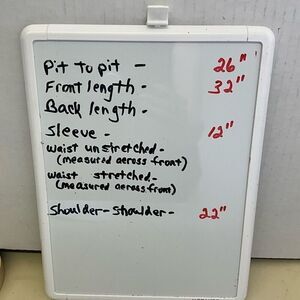 Pit to pit - 26"
Front length - 32"
Back length -
Sleeve - 12"
waist unstretched -
(measured across front)
waist stretched -
(measured across front)
Shoulder-Shoulder - 22"